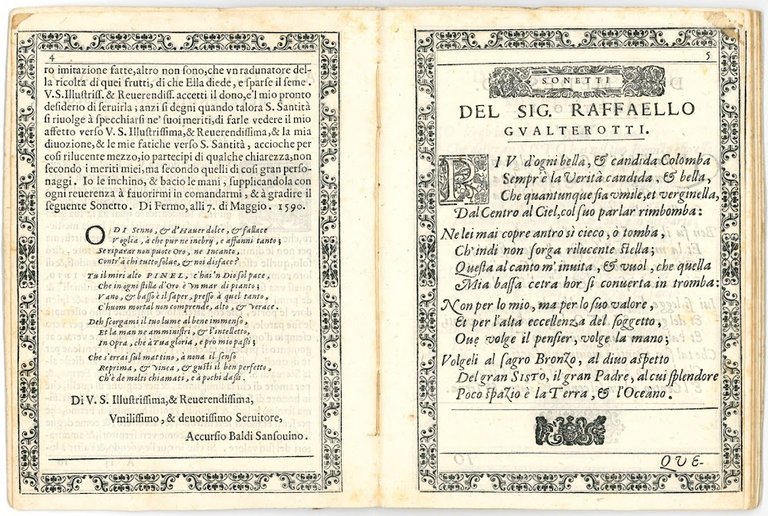 4
ro imitazione fatte, altro non sono, che vn radunatore del-
la ricolta di quei frutti, di che Ella diede, e sparse il seme.
V.S. Illustriss. & Reuerendiss. accetti il dono, e'l mio pronto
desiderio di seruirla; anzi si degni quando talora S. Santità
si riuolge à specchiarsi ne' suoi meriti, di farle vedere il mio
affetto verso V. S. Illustrissima, & Reuerendissima, & la mia
diuozione, & le mie fatiche verso S. Santità, accioche per
cosi rilucente mezzo, io partecipi di qualche chiarezza, non
secondo i meriti miei, ma secondo quelli di cosi gran perso-
naggi. Io le inchino, & bacio le mani, supplicandola con
ogni reuerenza à fauorirmi in comandarmi, & à gradire il
seguente Sonetto. Di Fermo, alli 7. di Maggio. 1590.
O DI Senno, & d'Hauer dolce, & fallace
Voglia, à che pur ne inebry, e affanni tanto;
Se riparar non puote Oro, ne Incanto,
Contr'à chi tutto solue, & noi disface?
Tu il miri alto PINEL, e hai'n Dio sol pace,
Che in ogni stilla d'Oro è vn mar di pianto;
Vano, & basso è il saper, presso à quel tanto,
C'huom mortal non comprende, alto, & verace.
Deh scorgami il tuo lume al bene immenso,
E la man ne amministri, & l'intelletto,
In opra, che à tua gloria, e prò mio passi;
Che s'errai sul mattino, à nona il senso
Reprima, & vinca, & gusti il ben perfetto,
Ch'è de molti chiamati, e à pochi dassi.
Di V. S. Illustrissima, & Reuerendissima,
Vmilissimo, & deuotissimo Seruitore,
Accursio Baldi Sansouino.
5
SONETTI
DEL SIG. RAFFAELLO
GVALTEROTTI.
PIV d'ogni bella, & candida Colomba
Sempr'è la Verità candida, & bella,
Che quantunque sia vmile, et verginella,
Dal Centro al Ciel, col suo parlar rimbomba:
Ne lei mai copre antro sì cieco, ò tomba,
Ch'indi non sorga rilucente stella;
Questa al canto m'inuita, & vuol, che quella
Mia bassa cetra hor si conuerta in tromba:
Non per lo mio, ma per lo suo valore,
Et per l'alta eccellenza del soggetto,
Oue volge il pensier, volge la mano;
Volgeli al sagro Bronzo, al diuo aspetto
Del gran SISTO, il gran Padre, al cui splendore
Poco spazio è la Terra, & l'Oceano.
QVE-